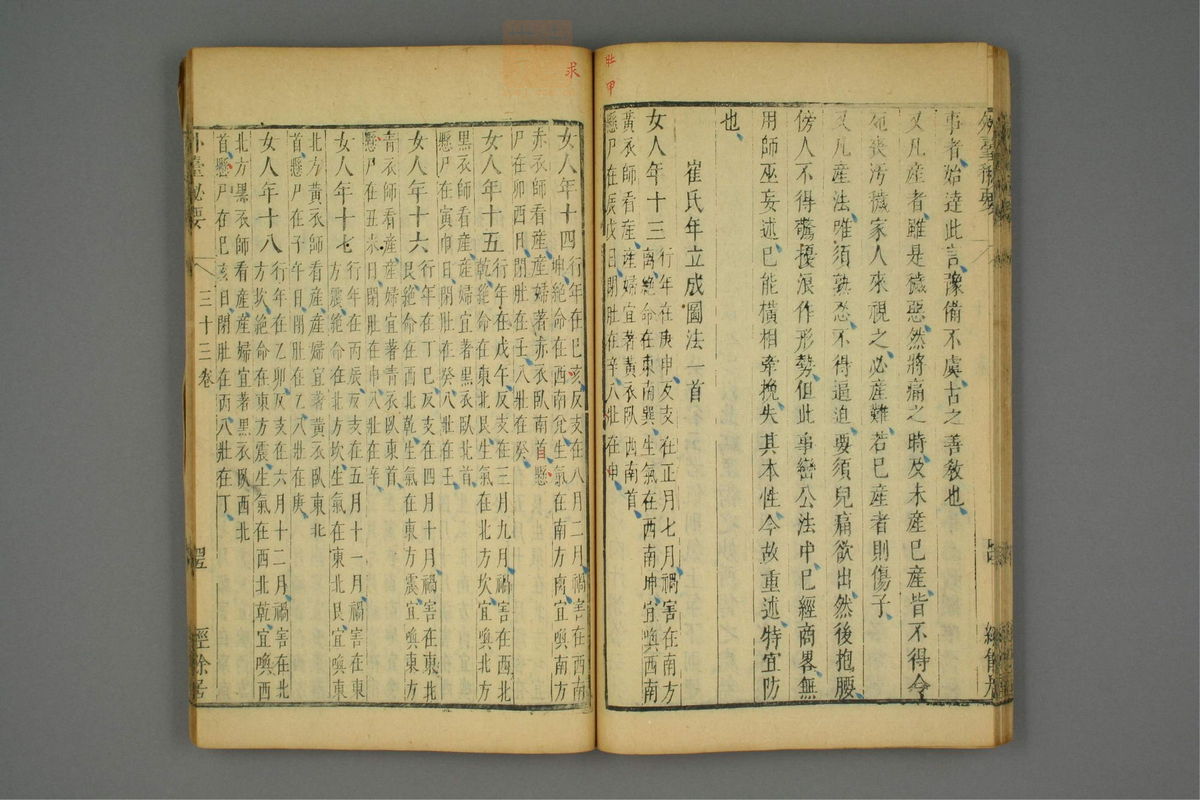 外臺祕要
事者始達此言豫備不虞古之善教也
又凡産者雖是穢惡然將痛之時及未産已産皆不得令
死喪汚穢家人來視之必産難若已産者則傷子
又凡産法唯須熟忍不得逼迫要須兒痛欲出然後抱腰
傍人不得驚擾浪作形勢但此事巒公法中已經商畧無
用師巫妄述已能橫相牽挽失其本性今故重述特宜防
也
崔氏年立成圖法一首
女人年十三
行年在庚申反支在正月七月禍害在南方
離絶命在東南巽生氣在西南坤宜喚西南
黃衣師看産産婦宜著黃衣臥西南首
懸尸在辰戌日閉肚在辛八壯在甲
壯甲
求
女人年十四
行年在己亥反支在八月二月禍害在西南
坤絶命在西南兊生氣在南方离宜喚南方
赤衣師看産産婦著赤衣臥南首懸
尸在卯酉日閉肚在壬八壯在癸
女人年十五
行年在戊午反支在三月九月禍害在西北
乾絶命在東北艮生氣在北方坎宜喚北方
黑衣師看産産婦宜著黑衣臥北首
懸尸在寅申日閉肚在癸八壯在壬
女人年十六
行年在丁巳反支在四月十月禍害在東北
艮絶命在西北乾生氣在東方震宜喚東方
青衣師看産産婦宜著青衣臥東首
懸尸在丑未日閉肚在甲八壯在辛
女人年十七
行年在丙辰反支在五月十一月禍害在東
方震絶命在北方坎生氣在東北艮宜喚東
北方黃衣師看産産婦宜著黃衣臥東北
首懸尸在子午日閉肚在乙八壯在庚
女人年十八
行年在乙卯反支在六月十二月禍害在北
方坎絶命在東方震生氣在西北乾宜喚西
北方黑衣師看産産婦宜著黑衣臥西北
首懸尸在巳亥日閉肚在丙八壯在丁
外臺祕要
三十三卷
經餘居